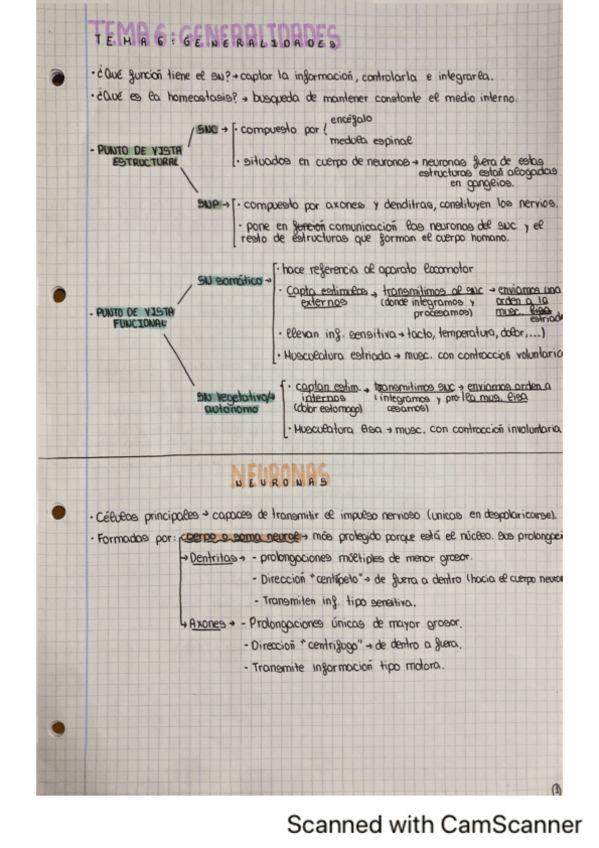 TEMA 6: GENERALIDADES
TEMA 6: GENERALIDADES
· ¿Qué función tiene el SN? → captar la información, controlarla e integrarla.
· ¿Qué es la homeostasis? → busqueda de mantener constante el medio interno.
- PUNTO DE VISTA ESTRUCTURAL
SNC → · compuesto por { encéfalo
medula espinal
· situados en cuerpo de neuronas → neuronas fuera de estas
estructuras están alogadas
en ganglios.
SNP → · compuesto por axones y dendritas, constituyen los nervios.
· pone en función comunicación las neuronas del SNC y el
resto de estructuras que forman el cuerpo humano.
- PUNTO DE VISTA FUNCIONAL
SN somático → · hace referencia al aparato locomotor
· Capta estimulos → transmitimos al SNC → enviamos una
externos (donde integramos y orden a la
procesamos) musc. lisa
estriada
· llevan inf. sensitiva → tacto, temperatura, dolor,...)
· Musculatura estriada → musc. con contraccion voluntaria
SN vegetativo/
autónomo
· captan estim. → transmitimos SNC → enviamos orden a
internos (integramos y pro- la mus. lisa
(dolor estomago) cesamos)
· Musculatura lisa → musc. con contracción involuntaria
NEURONAS
NEURONAS
· Células principales → capaces de transmitir el impulso nervioso (unicas en despolarizarse).
· Formadas por: cuerpo o soma neural → más protegido porque está el núcleo. Sus prolongaci
→ Dentritas → - prolongaciones múltiples de menor grosor.
- Dirección "centípeto" → de fuera a dentro (hacia el cuerpo neuro
- Transmiten inf. tipo sensitiva.
→ Axones → - Prolongaciones únicas de mayor grosor.
- Dirección "centrifugo" → de dentro a fuera.
- Transmite información tipo motora.
Scanned with CamScanner